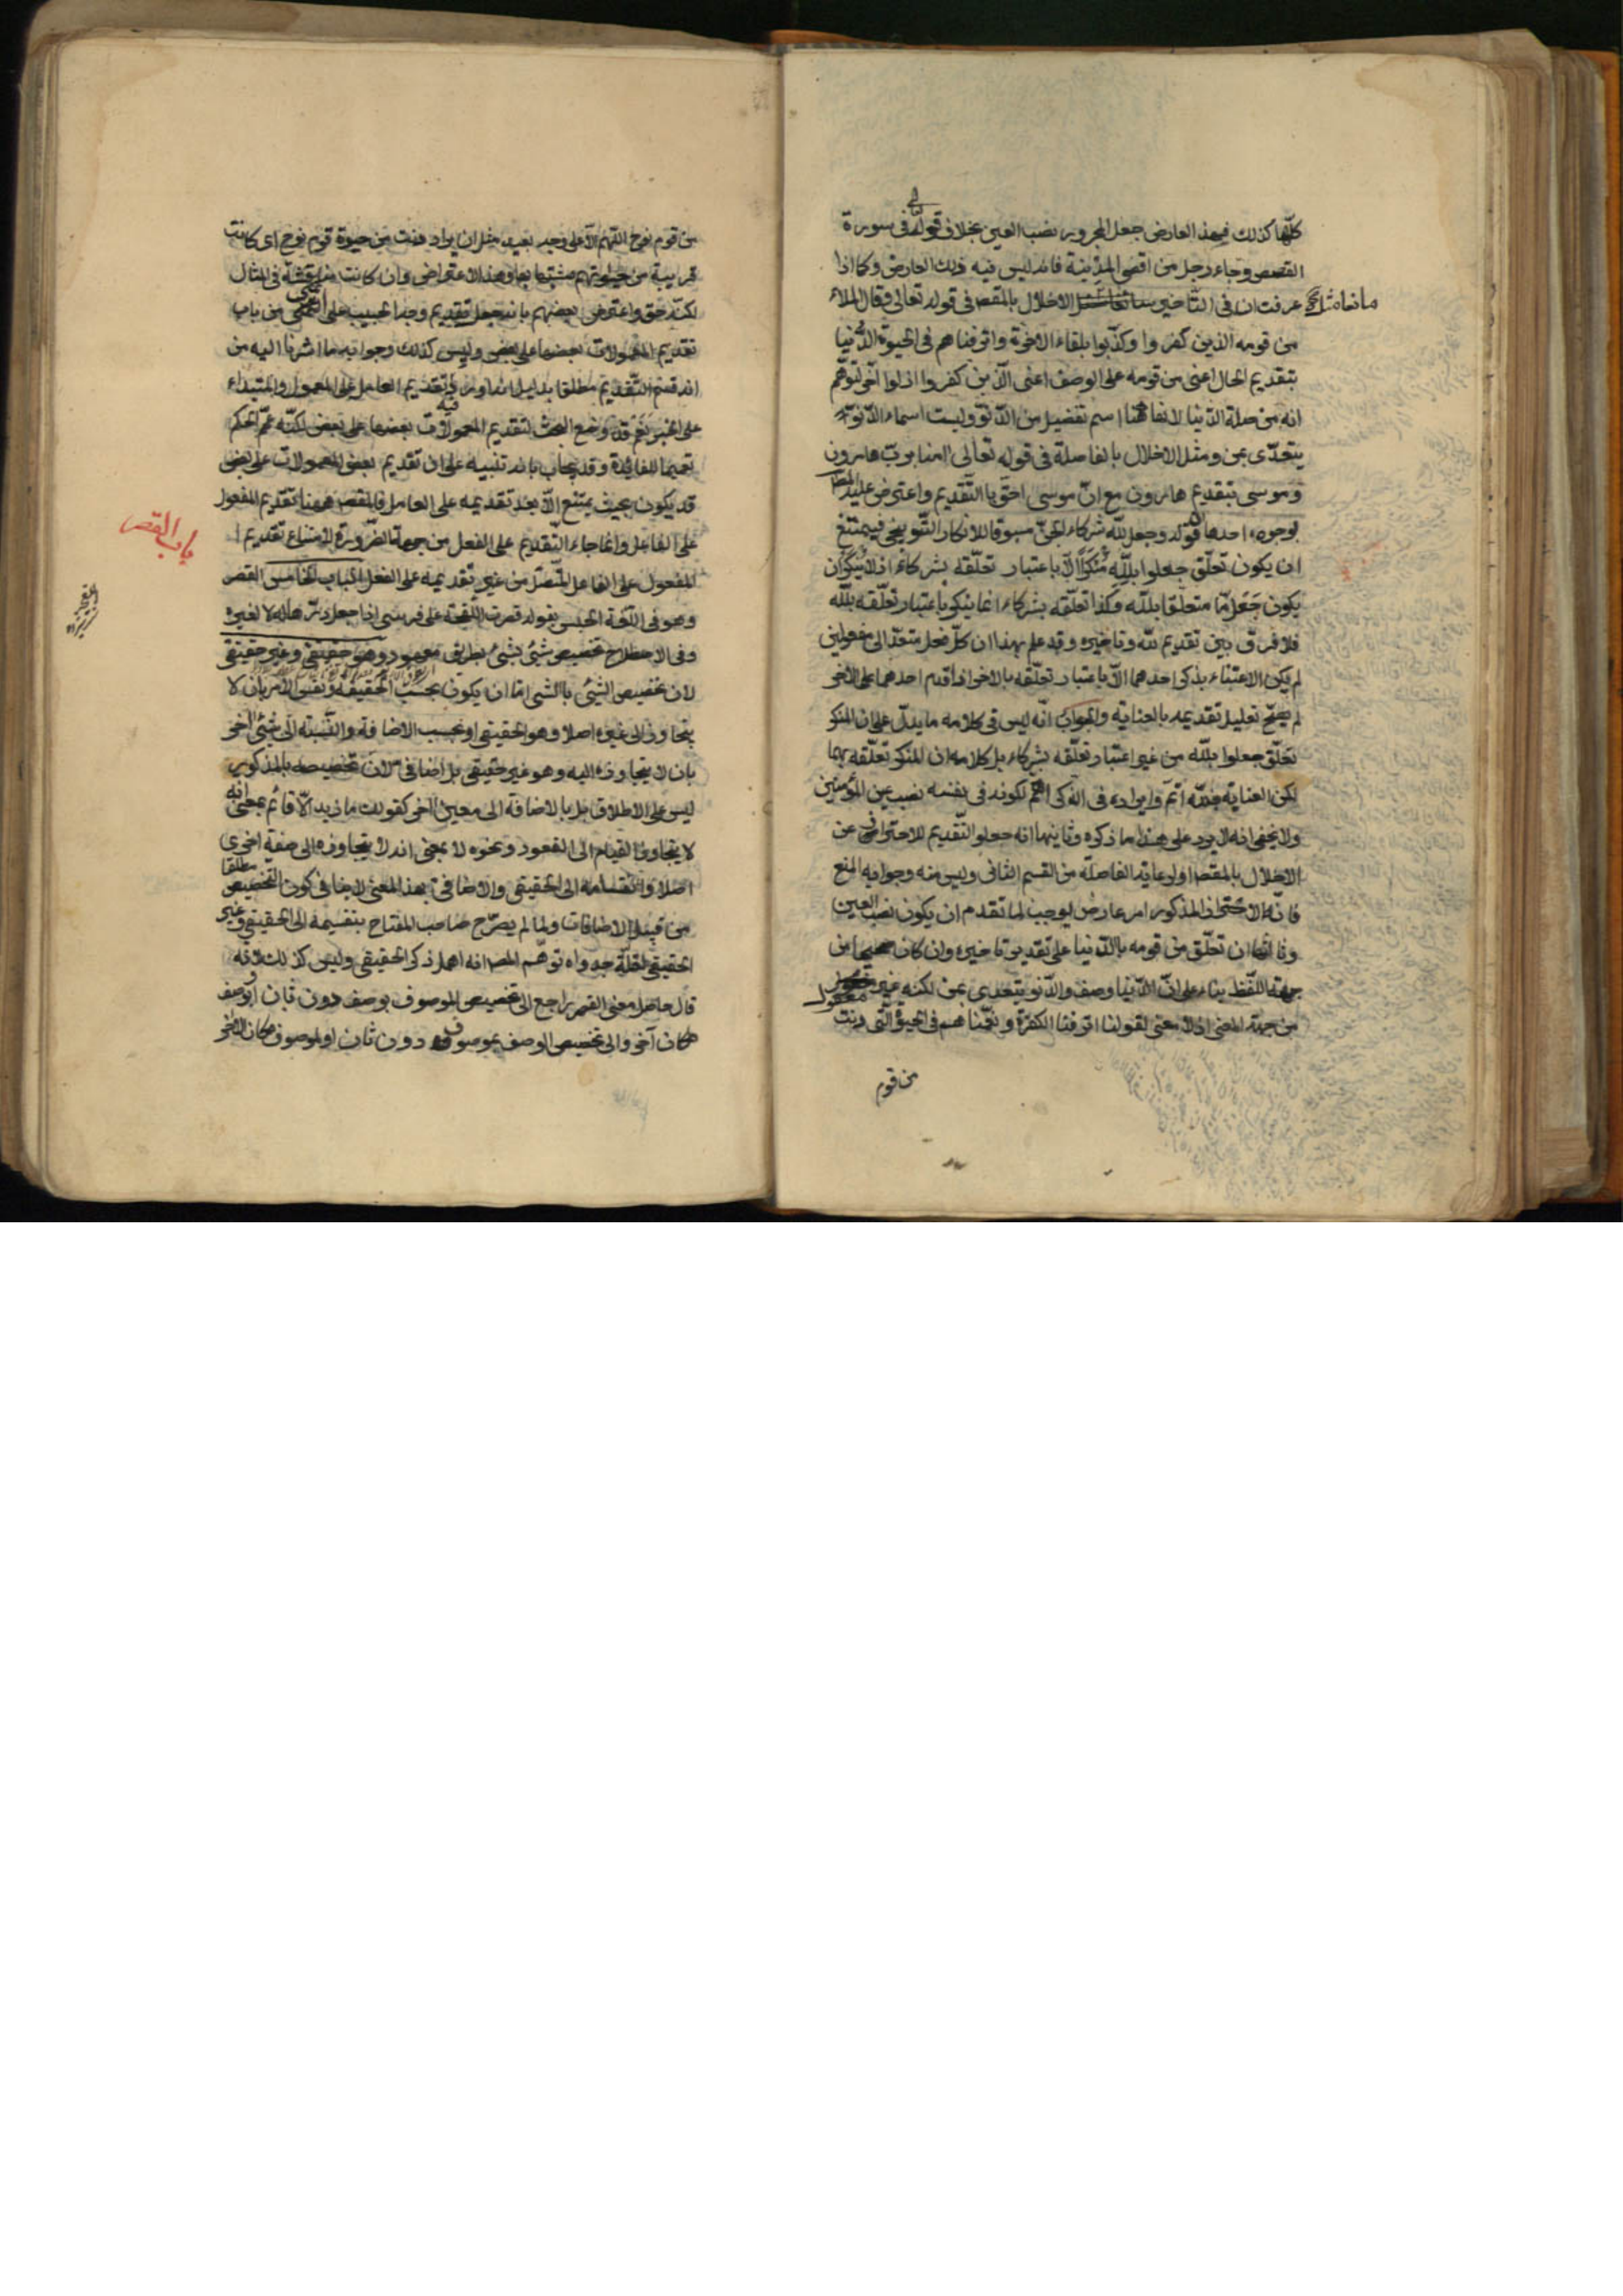 كلّها كذلك فبهذا العارض جعل المجرور نصب العين بخلاف قوله تعالى في سورة
القصص وجاء رجل من اقصى المدينة فانه ليس فيه ذلك العارض وكما اذا
عرفت ان في التأخير مانعا مثل الاخلال بالمقصود في قوله تعالى وقال الملاء
من قومه الذين كفروا وكذّبوا بلقاء الاخرة واترفناهم في الحيوة الدّنيا
بتقديم الحال اعنى من قومه على الوصف اعنى الّذين كفروا اذ لو اخّر لتوهّم
انه من صلة الدّنيا لانها هنا اسم تفضيل من الدّنوّ وليست اسما والدّنوّ
يتعدّى بمن ومثل الاخلال بالفاصلة في قوله تعالى امنا بربّ هارون
وموسى بتقديم هارون مع انّ موسى احقّ بالتّقديم واعترض عليه المص
بوجوه احدها ان قوله وجعلوا لله شركاء الجنّ مسوق للانكار التّوبيخي فيمتنع
ان يكون تعلّق جعلوا بالله منكرا الّا باعتبار تعلّقه بشركاء اذ لا ينكر ان
يكون جعل مّا متعلّقا بالله وكذا تعلّقه بشركاء انما ينكر باعتبار تعلّقه بالله
فلا فرق بين تقديم لله وتاخيره وقد علم بهذا ان كلّ فعل متعدّ الى مفعولين
لم يكن الاعتناء بذكر احدهما الّا باعتبار تعلّقه بالاخر اذا قدم احدهما على الاخر
لم يصحّ تعليل تقديمه بالعناية والجواب انّه ليس في كلامه ما يدلّ على ان المنكر
تعلّق جعلوا بالله من غير اعتبار تعلّقه بشركاء بل كلامه ان المنكر تعلّقه بهما
لكن العناية بالله اتمّ وايراده في الذكر اهمّ لكونه في نفسه نصب عين المؤمنين
ولا يخفى انه لا يرد على هذا ما ذكره وثانيهما انه جعل التّقديم للاحتراز عن
الاخلال بالمقصود او لرعاية الفاصلة من القسم الثانى وليس منه وجوابه المنع
فانّه المذكور امر عارض يوجب لما تقدم ان يكون نصب العين
وثالثها ان تعلّق من قومه بالدّنيا على تقدير تاخيره وان كان صحيحا من
جهة اللّفظ بناء على انّ الدّنيا وصف والدّنو يتعدى بمن لكنه غير معقول
من جهة المعنى اذ لا معنى لقولنا اترفنا الكفرة ونعّمناهم في الحيوة الّتى دنت
من قوم
من قوم نوح اللّهم الّا على وجه بعيد مثل ان يراد دنت من حيوة قوم نوح اى كانت
قريبة من حيوتهم شبيهة بها وهذا الاعتراض وان كانت مناقشة في المثال
لكنّه حق واعترض بعضهم بانه جعل تقديم وجه الحبيب على اتمنى من باب
تقديم المعمولات بعضها على بعض وليس كذلك وجوابه ما اشرنا اليه من
انه قسم التّقديم مطلقا بدليل انه اورد فيه تقديم العامل على المعمول والمبتداء
على الخبر نعم قد وضع البحث لتقديم المعمولات بعضها على بعض لكنّه عمّم الحكم
تعميما للفائدة وقد يجاب بانه تنبيه على ان تقديم بعض المعمولات على بعض
قد يكون بحيث يمتنع الّا بعد تقديمه على العامل فالمقصد ههنا تقديم المفعول
على الفاعل وانما جاء التّقديم على الفعل من جهة الضّرورة لامتناع تقديم
المفعول على الفاعل المتّصل من غير تقديمه على الفعل الباب الخامس القصر
باب القصر
وهو في اللّغة الحبس يقول قصرت اللّقحة على فرسى اذا جعل درّها له لا لغيره
وفى الاصطلاح تخصيص شئ بشئ بطريق معهود وهو حقيقى وغير حقيقى
لان تخصيص الشّئ بالشّئ امّا ان يكون بحسب الحقيقة ونفس الامر بان لا
يتجاوز الى غيره اصلا وهو الحقيقى او بحسب الاضافة والنّسبة الى شئ اخر
بان لا يتجاوزه اليه وهو غير حقيقى بل اضافى لانّ تخصيصه بالمذكور
ليس على الاطلاق بل بالاضافة الى معين اخر كقولك ما زيد الّا قائم بمعنى انه
لا يتجاوز القيام الى القعود ونحوه لا بمعنى انه لا يتجاوزه الى صفة اخرى
اصلا وانقسامه الى الحقيقى والاضافى بهذا المعنى لا ينافى كون التّخصيص مطلقا
من قبيل الاضافات ولما لم يصرّح صاحب المفتاح بتقسيمه الى الحقيقى وغير
الحقيقى لقلّة جدواه توهّم المص انه اهمل ذكر الحقيقى وليس كذلك لانه
قال حاصل معنى القصر راجع الى تخصيص الموصوف بوصف دون ثان او بوصف
مكان آخر والى تخصيص الوصف بموصوف دون ثان او بموصوف مكان اخر